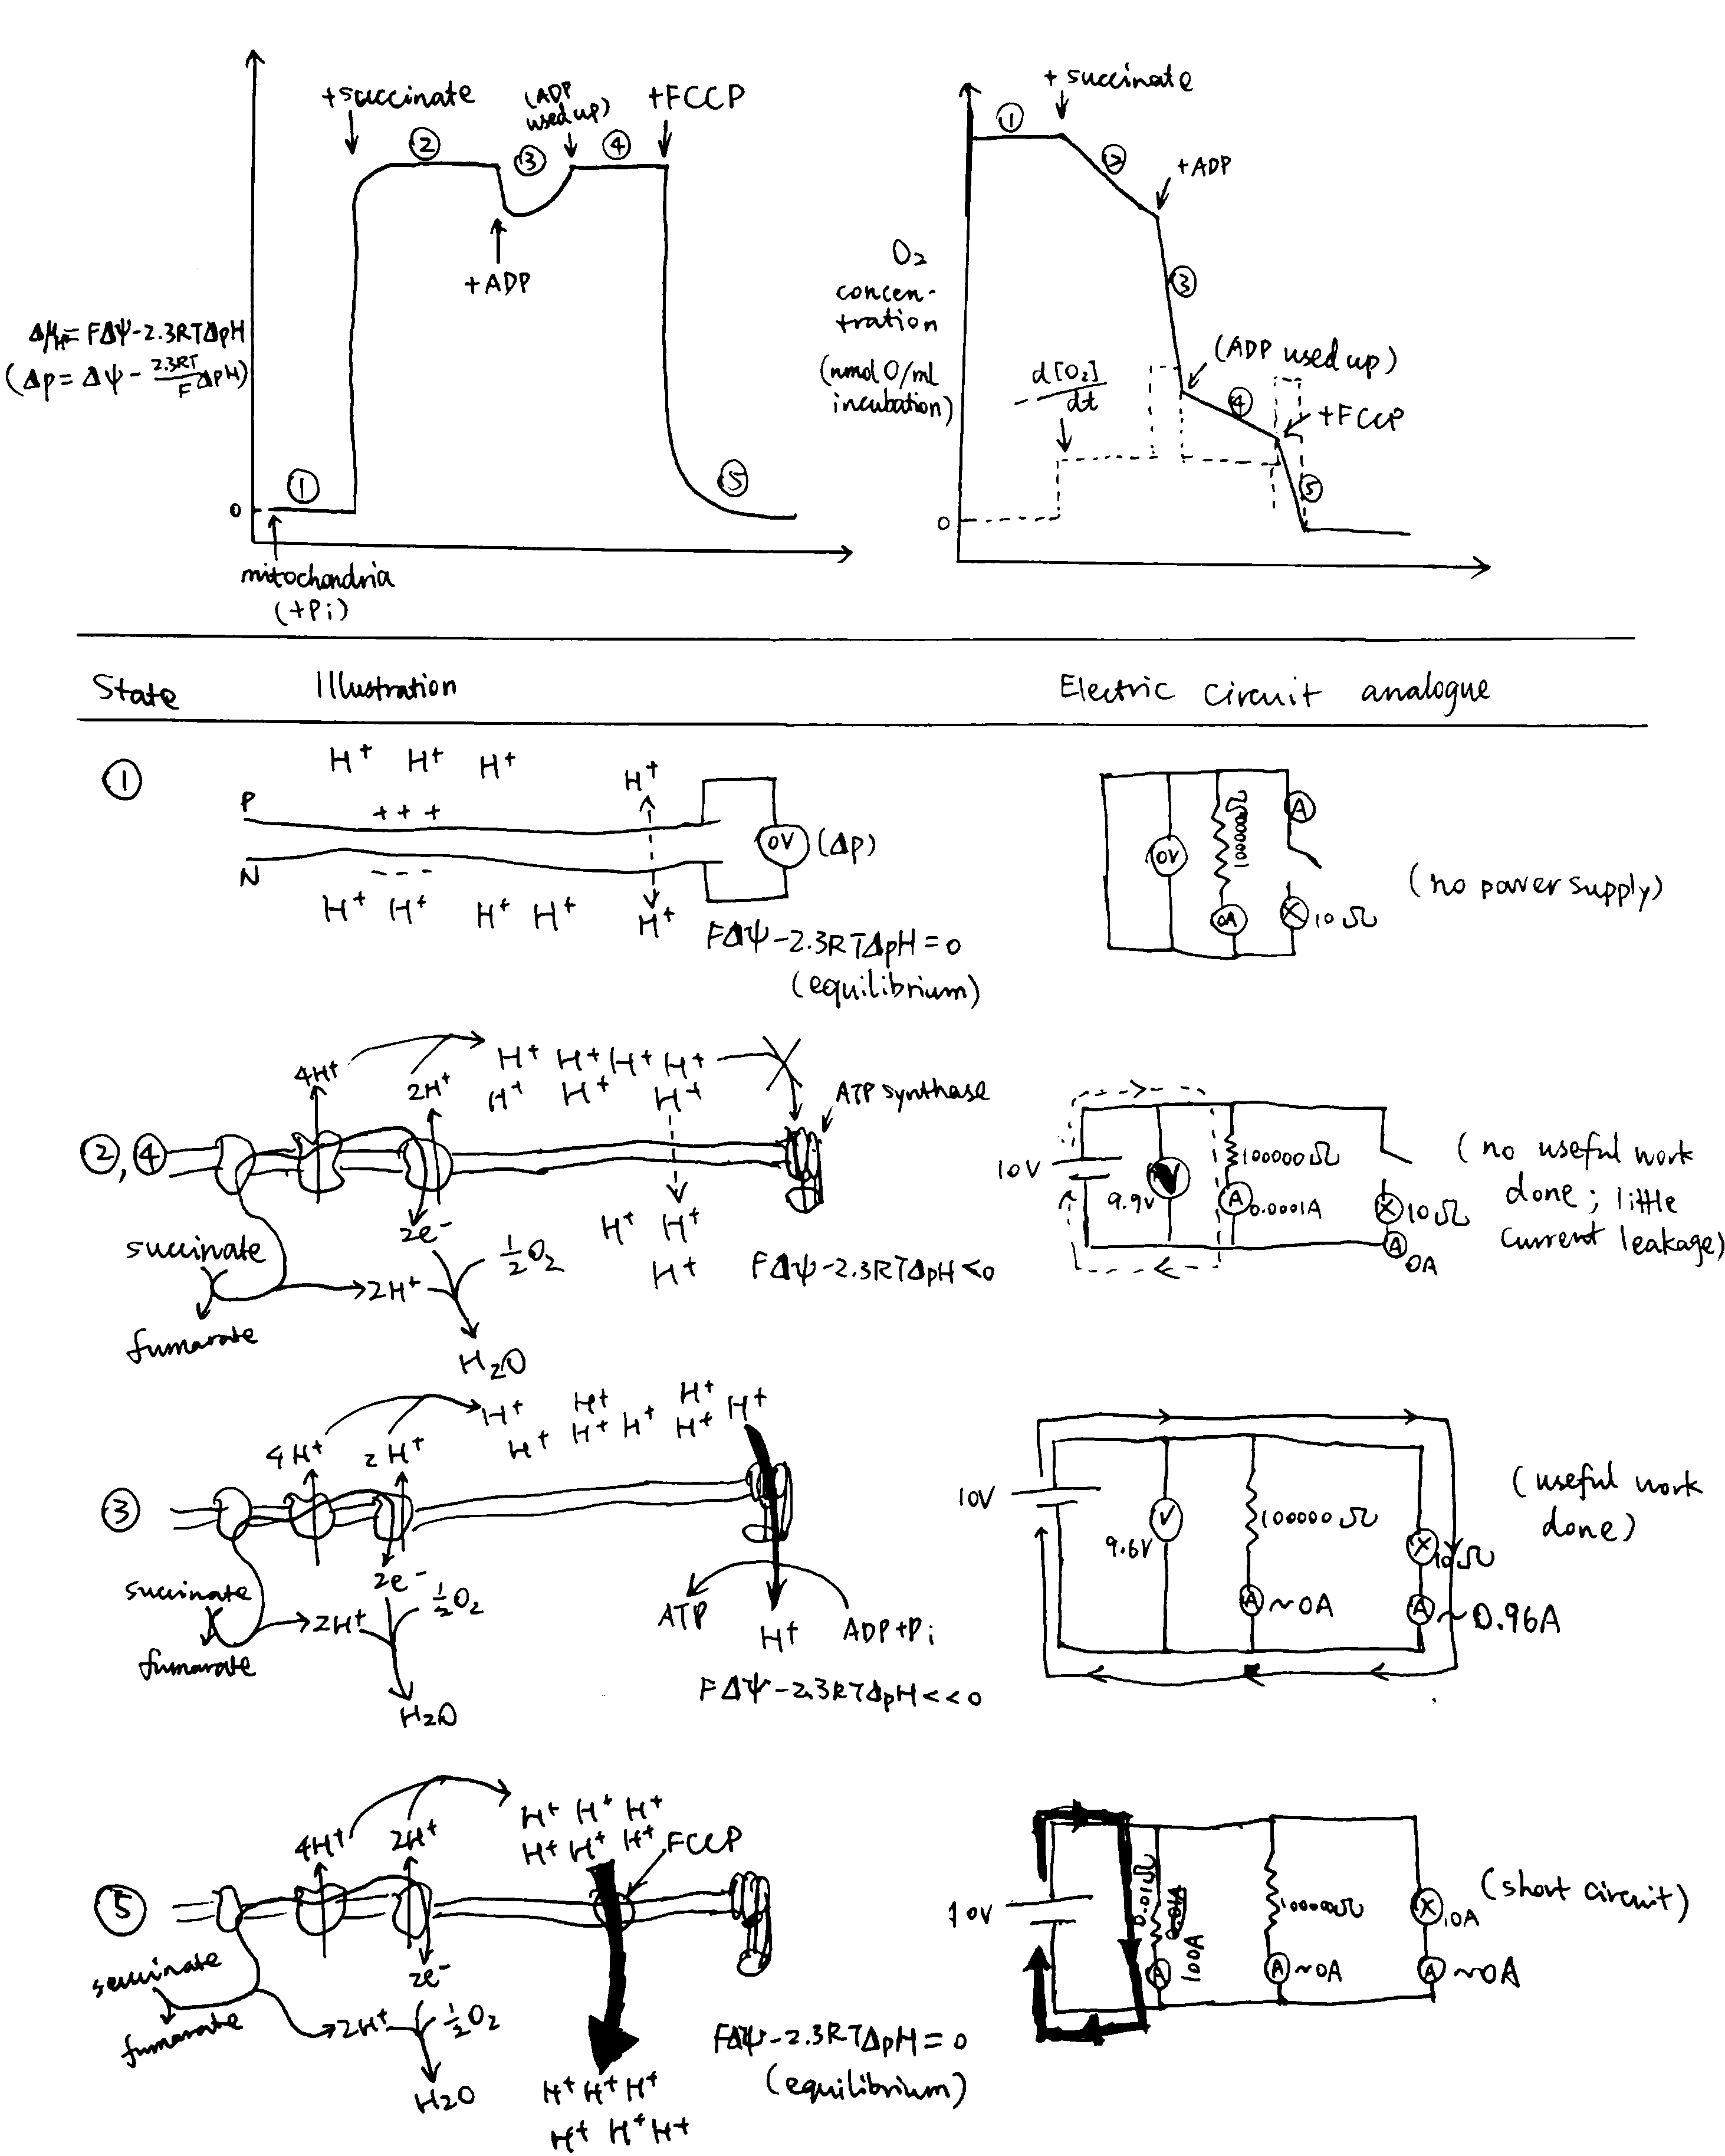 +succinate
②
(ADP
used up)
③
④
+FCCP
+ADP
Δμ_H+ = FΔΨ-2.3RTΔpH
(Δp = ΔΨ - 2.3RT/F ΔpH)
①
⑤
0
mitochondria
(+Pi)
+ succinate
①
②
+ADP
O₂
concen-
tration
(nmol O/ml
incubation)
③
- d[O₂]/dt
(ADP used up)
④
+FCCP
⑤
0
State Illustration Electric circuit analogue
①
H⁺ H⁺ H⁺
H⁺
P
+ + +
0V (Δp)
N
- - -
H⁺ H⁺ H⁺ H⁺
H⁺
FΔΨ-2.3RTΔpH = 0
(equilibrium)
A
0V
100000Ω
0A
10Ω
(no power supply)
②,④
4H⁺
2H⁺
H⁺ H⁺ H⁺ H⁺
H⁺ H⁺ H⁺
ATP synthase
2e⁻
succinate
½O₂
2H⁺
fumarate
H₂O
H⁺ H⁺
H⁺
FΔΨ-2.3RTΔpH <0
10V
9.9V
V
100000Ω
A 0.0001A
10Ω
A 0A
(no useful work
done; little
current leakage)
③
4H⁺
2H⁺
H⁺ H⁺ H⁺ H⁺
H⁺ H⁺ H⁺ H⁺
2e⁻
succinate
½O₂
2H⁺
fumarate
H₂O
ATP
H⁺
ADP+Pi
FΔΨ-2.3RTΔpH << 0
10V
V
9.6V
100000Ω
10Ω
A ~0A
A ~0.96A
(useful work
done)
⑤
4H⁺
2H⁺
H⁺ H⁺ H⁺
H⁺ H⁺ H⁺
FCCP
2e⁻
succinate
½O₂
2H⁺
fumarate
H₂O
H⁺ H⁺ H⁺
H⁺ H⁺ H⁺
FΔΨ-2.3RTΔpH = 0
(equilibrium)
10V
0.01Ω
A 100A
100000Ω
A ~0A
10A
A ~0A
(short circuit)